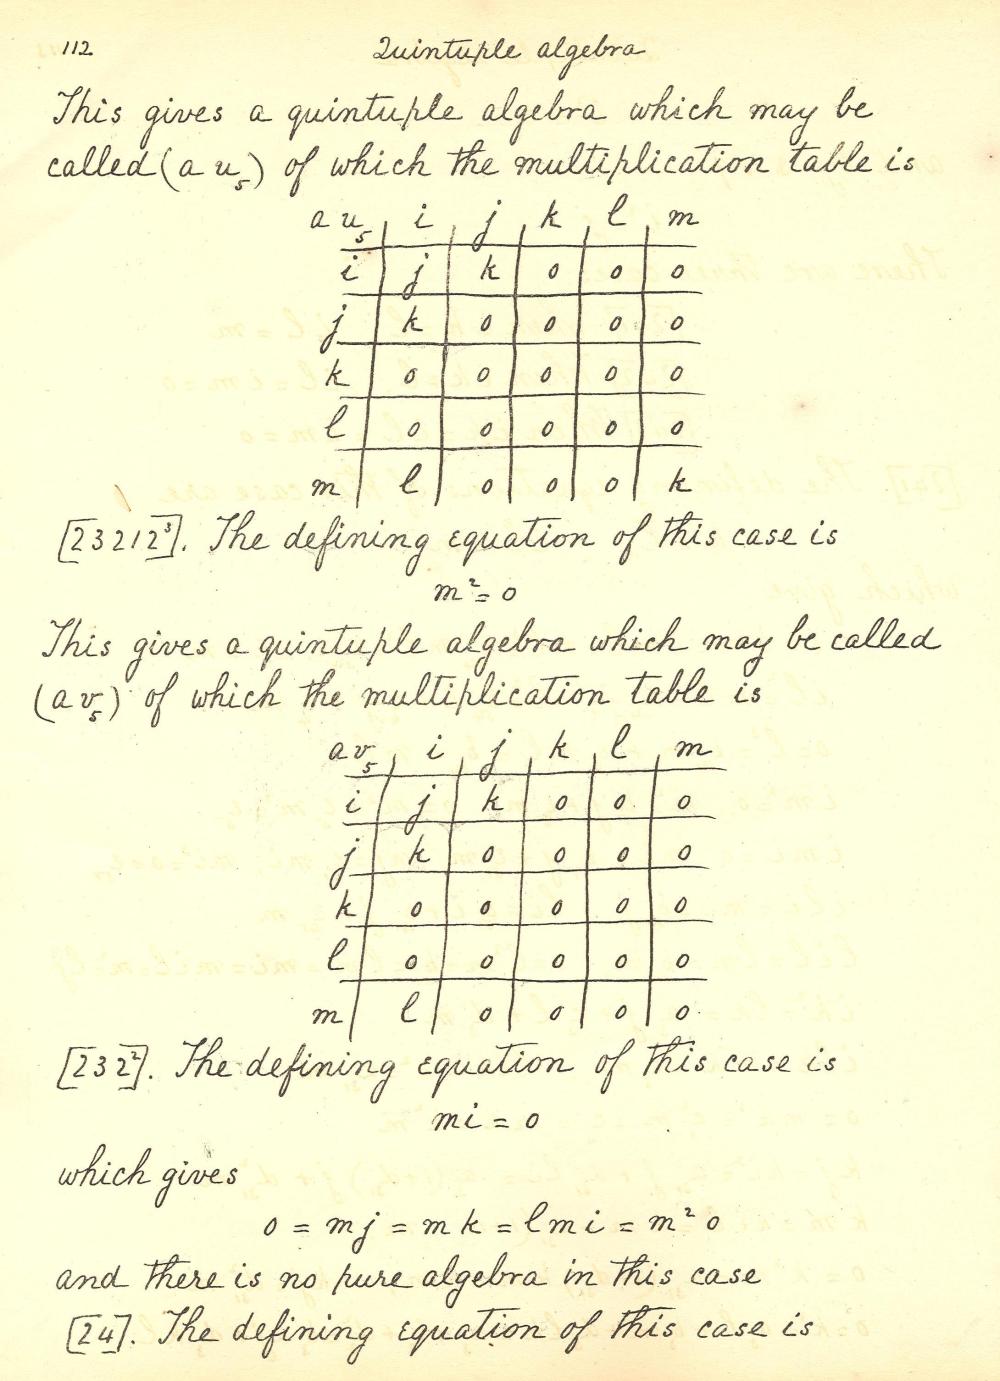 112 Quintuple algebra
This gives a quintuple algebra which may be
called (a u₅) of which the multiplication table is
a u₅ i j k l m
i j k 0 0 0
j k 0 0 0 0
k 0 0 0 0 0
l 0 0 0 0 0
m l 0 0 0 k
[23212³]. The defining equation of this case is
m² = 0
This gives a quintuple algebra which may be called
(a v₅) of which the multiplication table is
a v₅ i j k l m
i j k 0 0 0
j k 0 0 0 0
k 0 0 0 0 0
l 0 0 0 0 0
m l 0 0 0 0
[232²]. The defining equation of this case is
mi = 0
which gives
0 = mj = mk = lmi = m² 0
and there is no pure algebra in this case
[24]. The defining equation of this case is